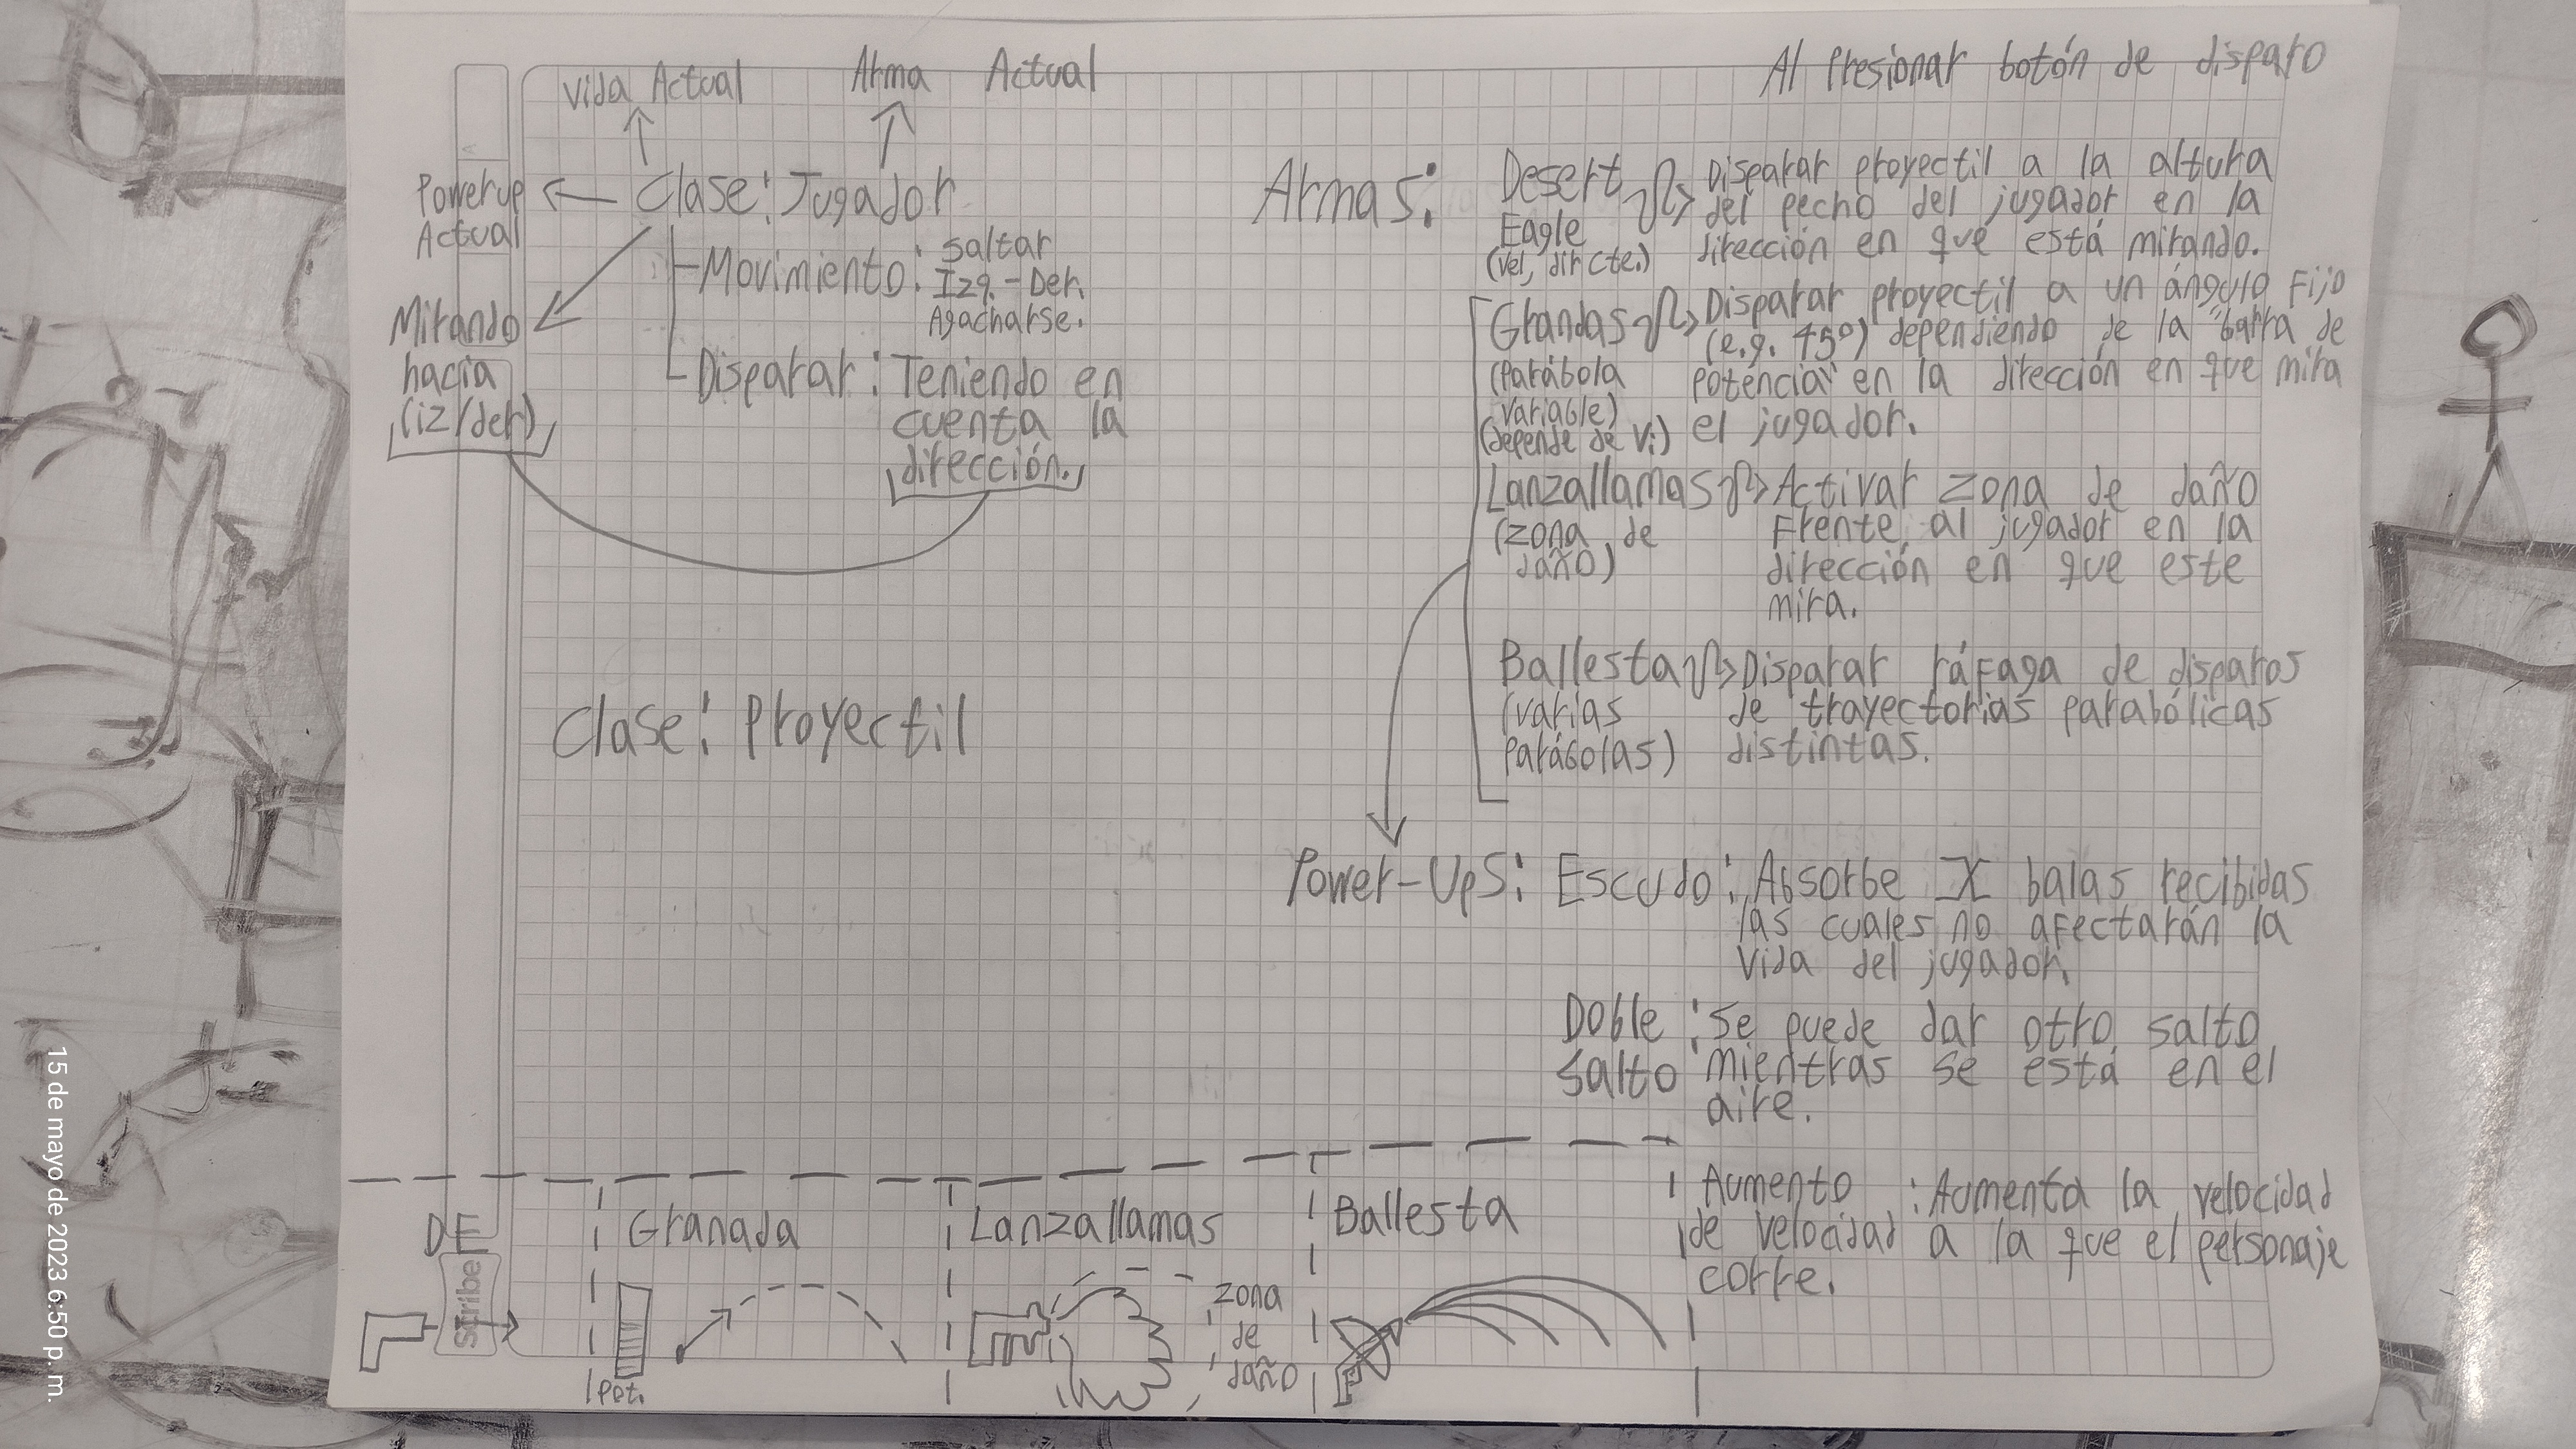 Vida Actual
Arma Actual
Powerup
Actual
Clase: Jugador
Mirando
hacia
(iz/der)
-Movimiento: Saltar
Izq. - Der.
Agacharse.
-Disparar: Teniendo en
cuenta la
dirección.
Clase: Proyectil
Al presionar botón de disparo
Armas:
Desert
Eagle
(vel, dir cte.)
Disparar proyectil a la altura
del pecho del jugador en la
dirección en que está mirando.
Granadas
(Parábola
variable)
(depende de Vi)
Disparar proyectil a un ángulo fijo
(e.g. 45°) dependiendo de la "barra de
potencia" en la dirección en que mira
el jugador.
Lanzallamas
(zona de
daño)
Activar zona de daño
frente al jugador en la
dirección en que este
mira.
Ballesta
(varias
parábolas)
Disparar ráfaga de disparos
de trayectorias parabólicas
distintas.
Power-Ups: Escudo: Absorbe X balas recibidas
las cuales no afectarán la
vida del jugador.
Doble
Salto
: Se puede dar otro salto
mientras se está en el
aire.
Aumento
de velocidad
: Aumenta la velocidad
a la que el personaje
corre.
DE
Granada
Lanzallamas
Ballesta
Pot.
zona
de
daño
Scribe
15 de mayo de 2023 6:50 p. m.